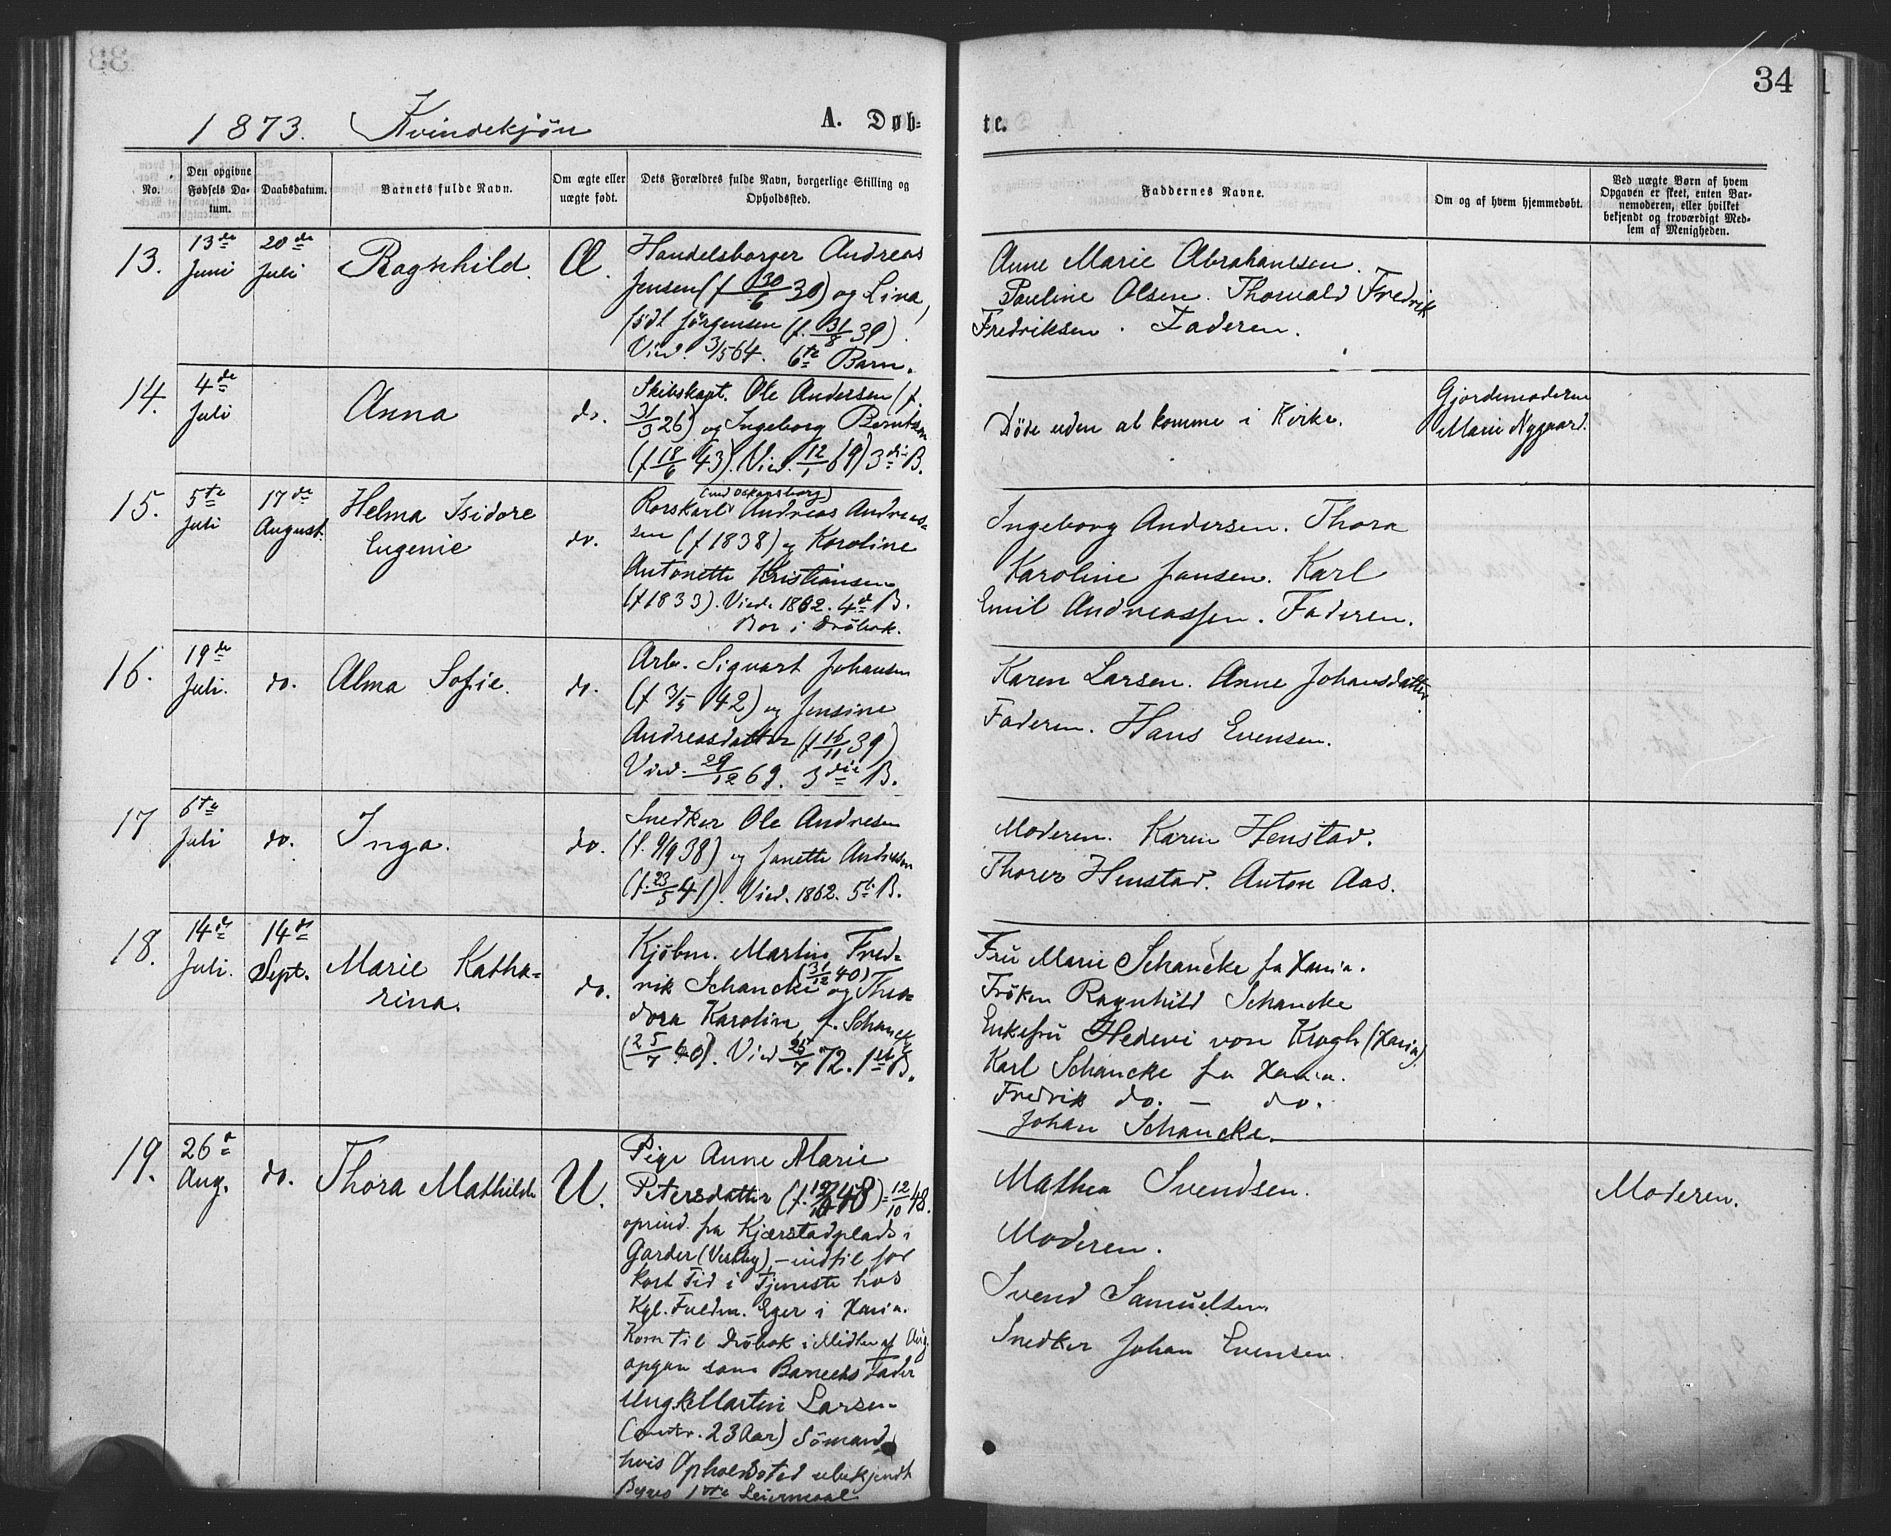 34
1873. Kvindekjøn
A. Døb-
te.
No.
Den opgivne Fødsels Da-tum.
Daabsdatum.
Barnets fulde Navn.
Om ægte eller uægte født.
Dets Forældres fulde Navn, borgerlige Stilling og Opholdssted.
Faddernes Navne.
Om og af hvem hjemmedøbt.
Ved uægte Børn af hvem Opgaven er skeet, enten Bar-nemoderen, eller hvilket bekjendt og troværdigt Med-lem af Menigheden.
13.
13de Juni
20de Juli
Ragnhild.
Æ.
Handelsborger Andreas
Jensen (f 30/6 30) og Lina,
født Jørgensen (f. 31/8 39).
Viet. 3/5 64. 6te Barn.
Anne Marie Abrahamsen.
Pauline Olsen. Thorvald Fredrik
Fredriksen. Faderen.
14.
4de Juli
Anna
do.
Skibskapt. Ole Andersen (f.
31/3 26) og Ingeborg Berntsen
(f 18/6 43). Viet. 12/1 69) 3die B.
Døde uden at komme i Kirke.
Gjordemoderen
Marie Nygaard.
15.
5te Juli
17de August.
Helma Isidore
Eugenie
do.
(ved Oskarsborg)
Rorskarl Andreas Andreas-
sen (f 1838) og Karoline
Antonette Kristiansen
(f 1833). Viet. 1862. 4de B.
Bor i Drøbak.
Ingeborg Andersen. Thora
Karoline Jansen. Karl
Emil Andreassen. Faderen.
16.
19de Juli.
do.
Alma Sofie.
do.
Arb. Sigvart Johansen
(f 3/5 42) og Jensine
Andreasdatter (f 16/11 39)
Viet. 29/12 69. 3die B.
Karen Larsen. Anne Johansdatter
Faderen. Hans Evensen.
17
6te Juli
do.
Inga.
do.
Snedker Ole Andresen
(f. 9/9 38) og Janette Andresen
(f. 23/5 41). Viet. 1862. 5te B.
Moderen. Karen Henstad.
Thorer Henstad. Anton Aas.
18.
14de Juli.
14de Sept.
Marie Katha-
rina.
do.
Kjøbm. Martin Fred-
rik Schancke (31/12 40) og Theo-
dora Karolin, f. Schancke
(25/7 40). Viet 25/7 72. 1ste B.
Fru Marie Schancke fra Xania.
Frøken Ragnhild Schancke
Enkefru Hedevi von Krogh (Xania)
Karl Schancke fra Xania.
Fredrik do. – do.
Johan Schancke.
19.
26de Aug.
do.
Thora Mathilde
U.
Pige Anne Marie
Petersdatter (f. 12/10 48) = 12/10 48.
oprind. fra Kjærstadplads i
Garder (Vestby), – indtil for
kort Tid i Tjeneste hos
Kgl. Fuldm. Eger i Xania.
Kom til Drøbak i Midten af Aug.
opgav som Barnets Fader
Ungk. Martin Larsen
(omtr. 23 Aar) Sømand
hvis Opholdssted ubekjendt
Begges 1ste Leiermaal
Mathea Svendsen.
Moderen.
Svend Samuelsen.
Snedker Johan Evensen.
Moderen.